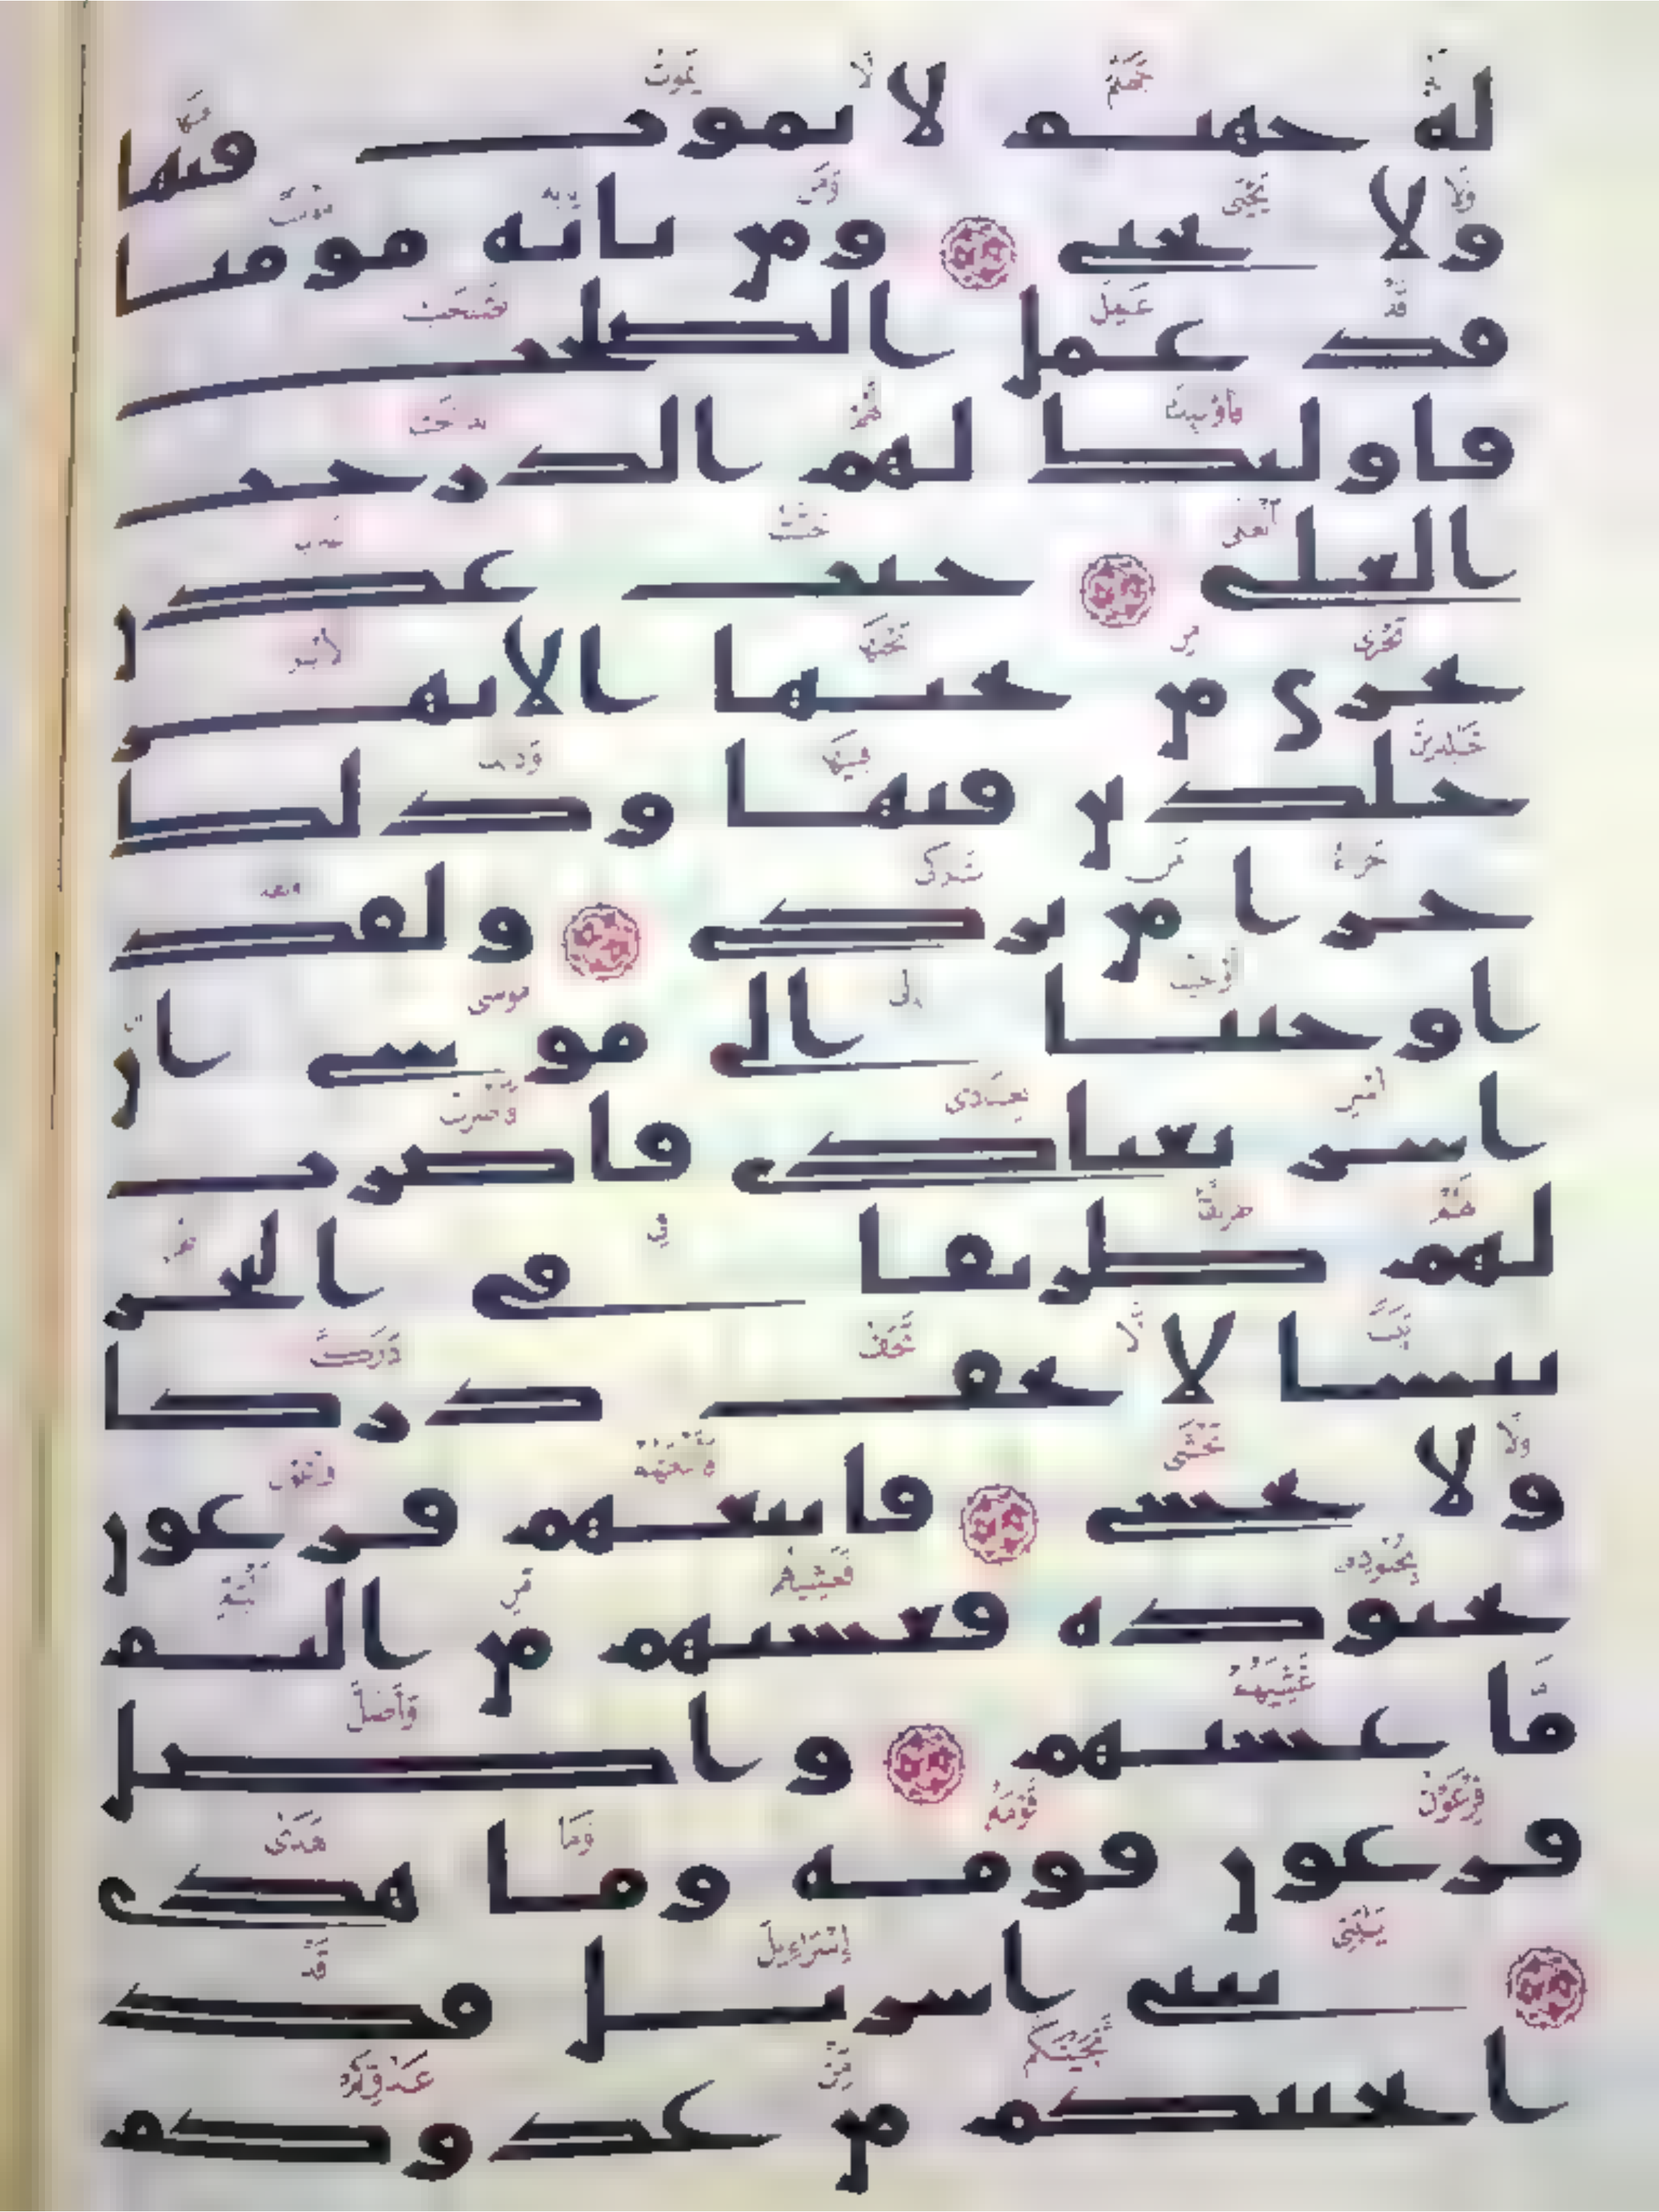 له جهنم لا يموت فيها
ولا يحيى ومن ياته مومنا
قد عمل الصلحت
فاوليك لهم الدرجت
العلى جنت عدن
تجري من تحتها الانهر
خلدين فيها وذلك
جزا من تزكى ولقد
اوحينا الى موسى ان
اسر بعبادي فاضرب
لهم طريقا في البحر
يبسا لا تخف دركا
ولا تخشى فاتبعهم فرعون
بجنوده فغشيهم من اليم
ما غشيهم واضل
فرعون قومه وما هدى
يبني اسريل قد
انجينكم من عدوكم